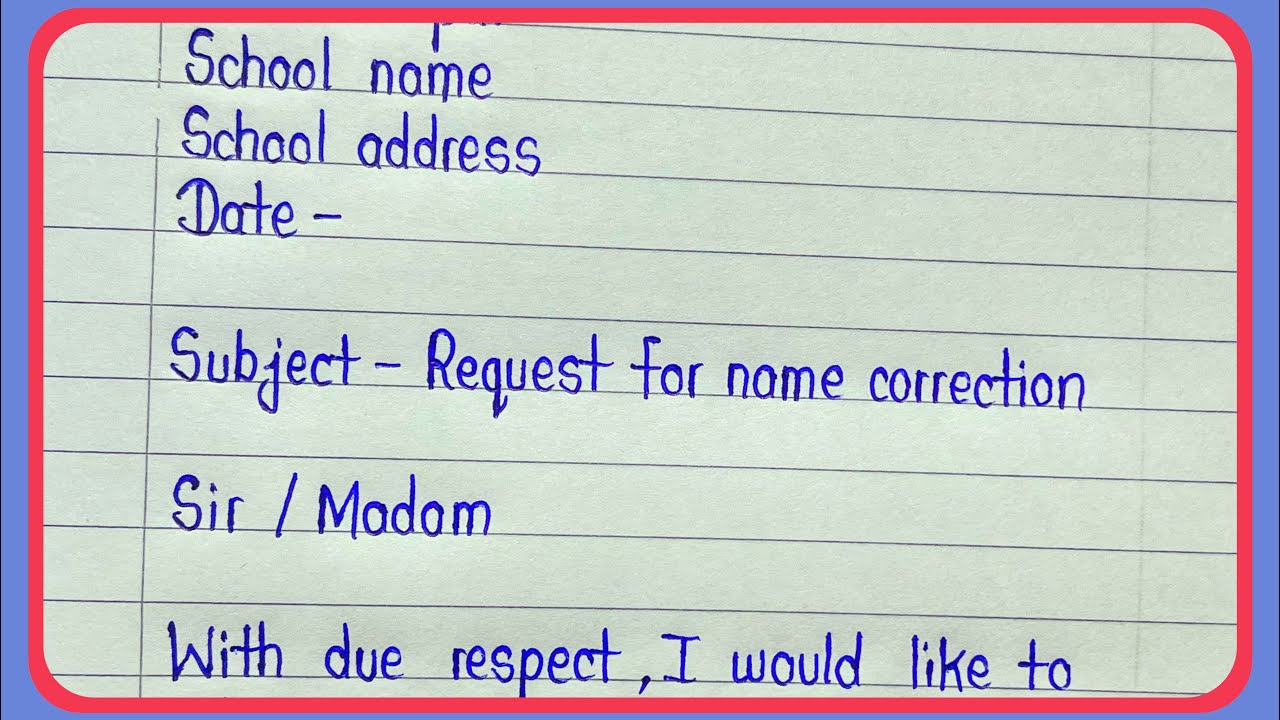 School name
School address
Date -
Subject - Request for name correction
Sir / Madam
With due respect, I would like to